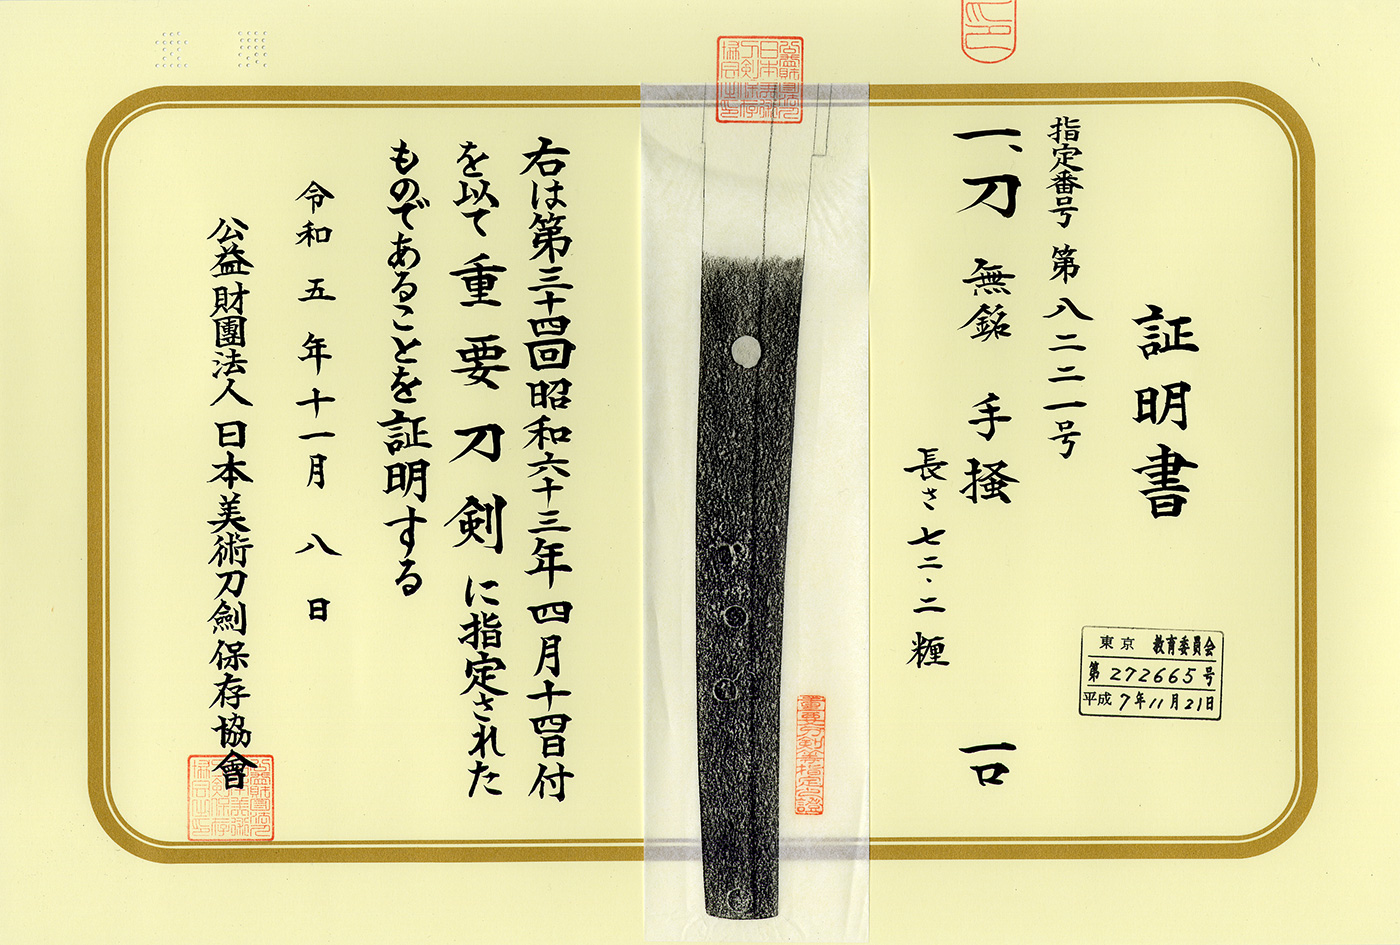 証明書
指定番号 第八二二一号
一、刀 無銘 手掻 一口
長さ 七二・二 糎
東京 教育委員会
第272665号
平成7年11月21日
右は第三十四回昭和六十三年四月十四日付
を以て重要刀剣に指定された
ものであることを証明する
令和五年十一月八日
公益財團法人日本美術刀劍保存協會